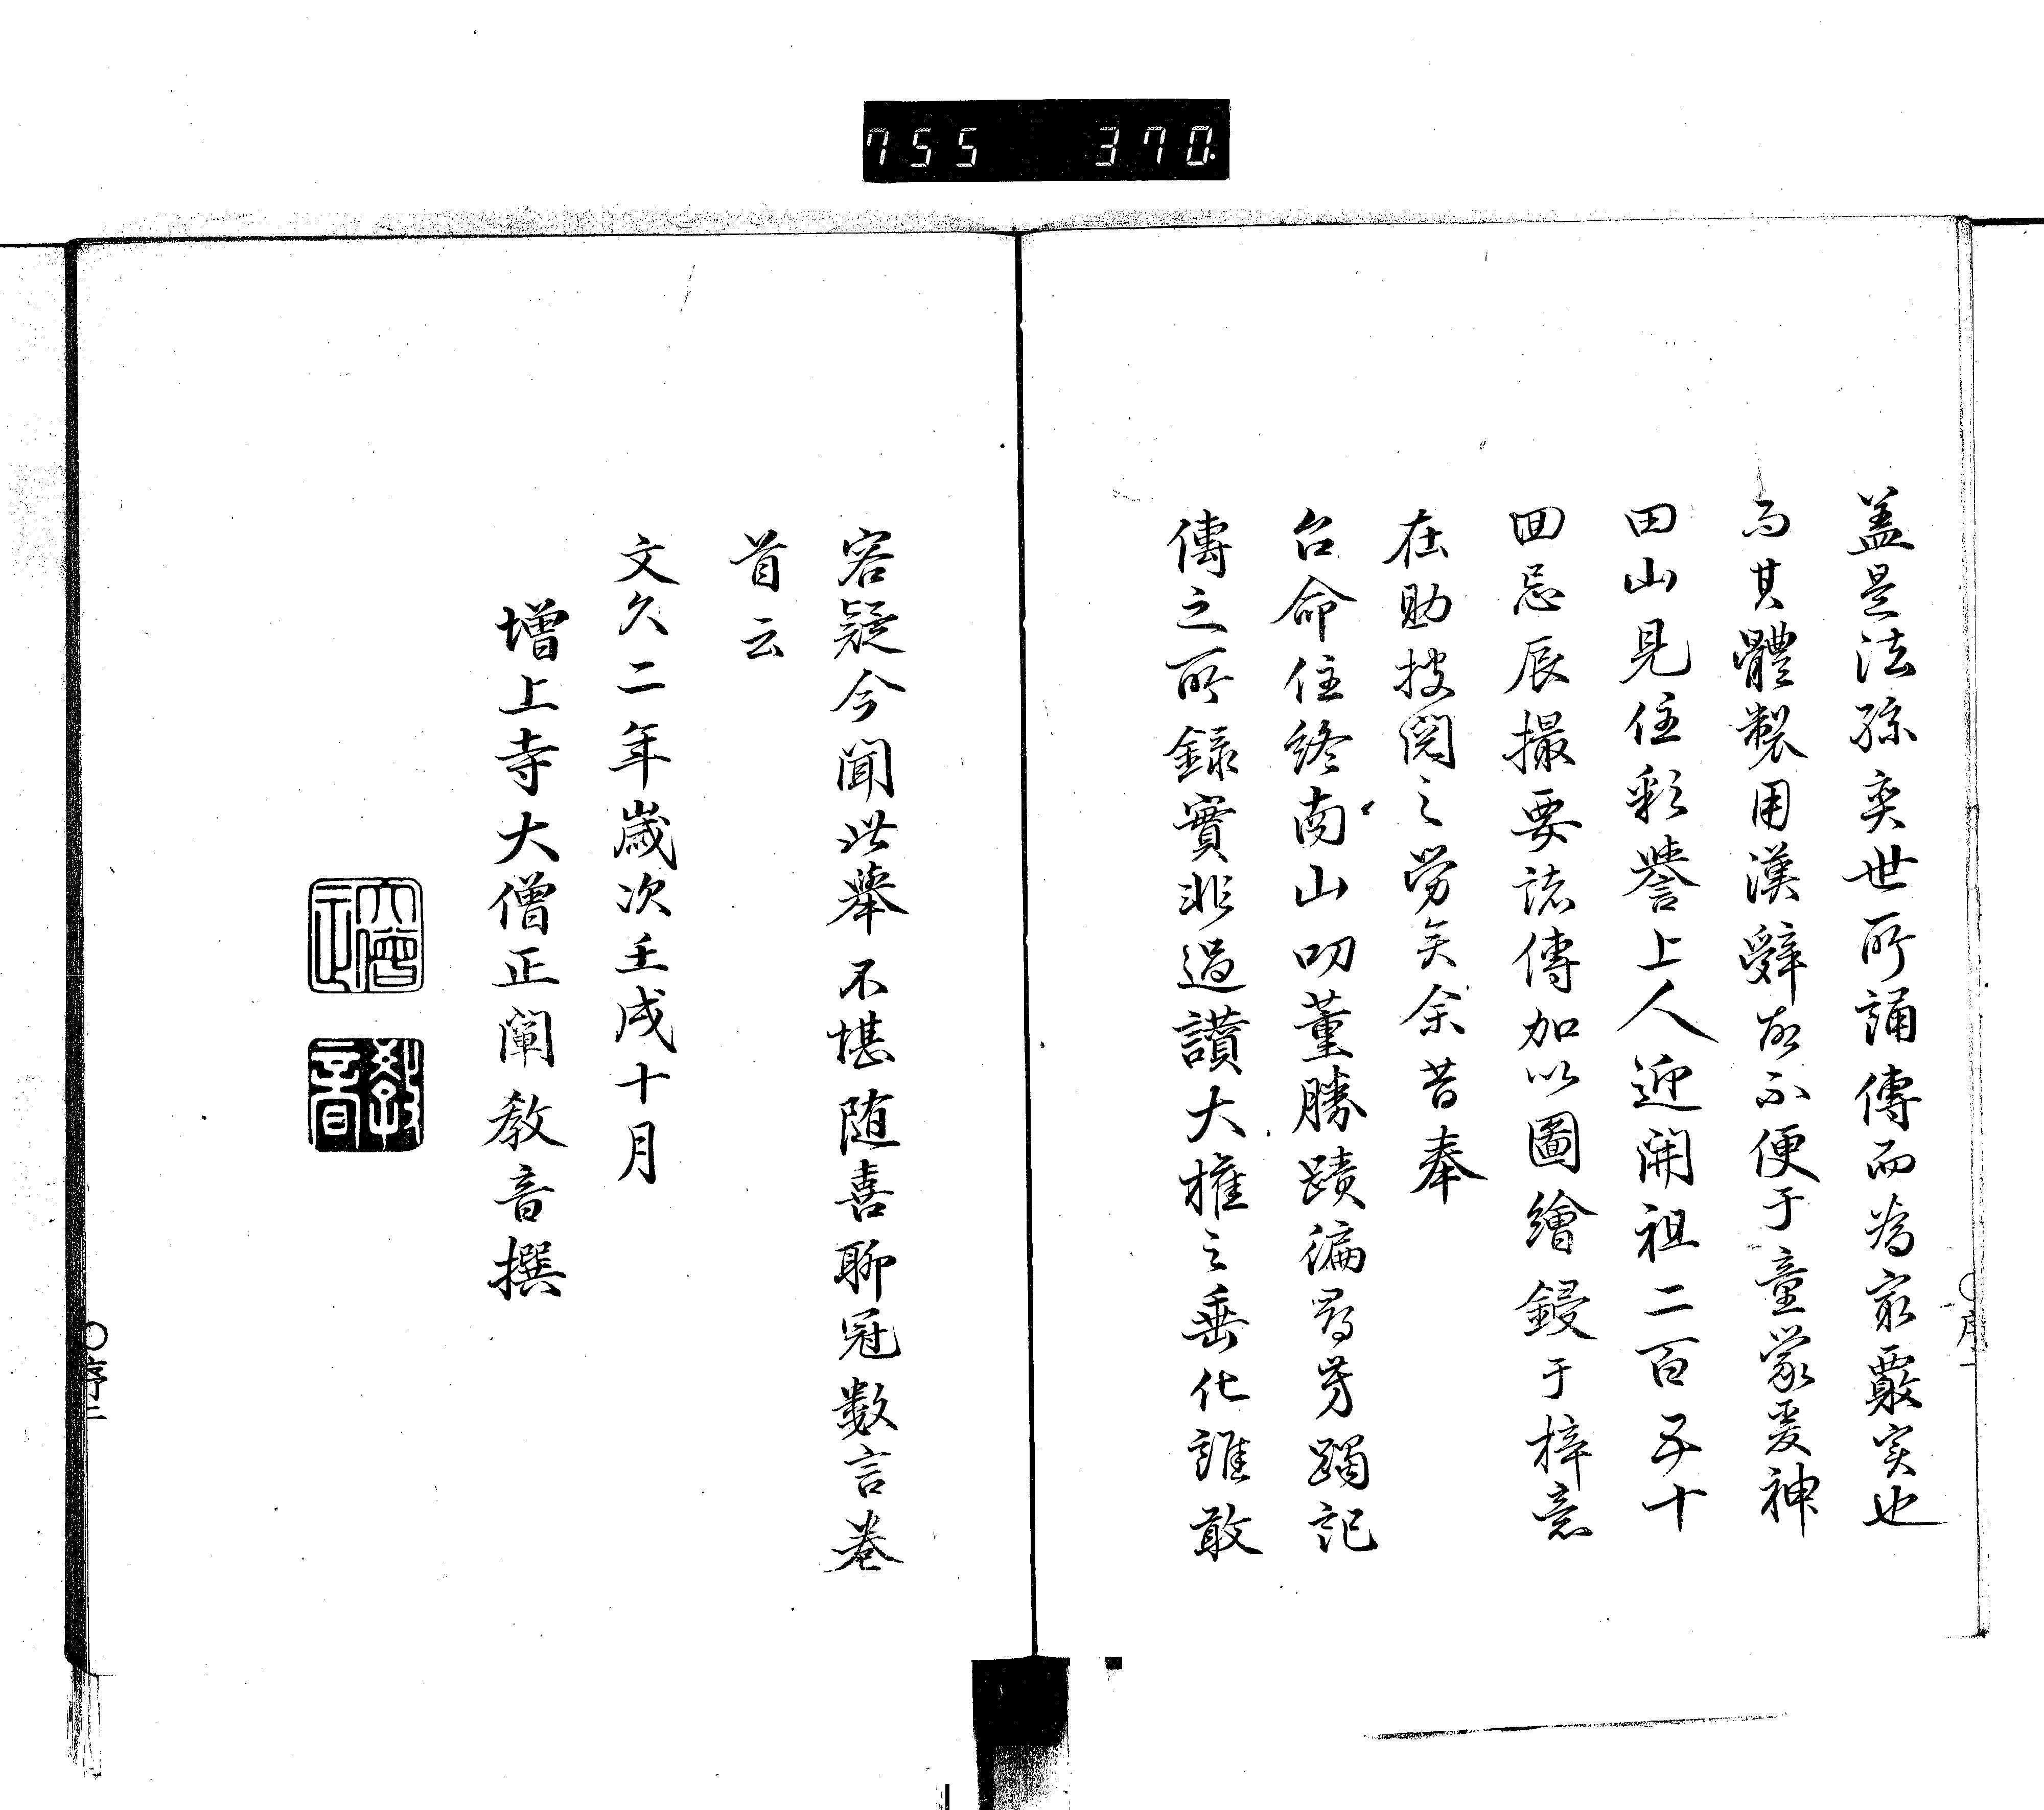 755 370
蓋是法孫奕世所誦傳而為最覈实也
而其體製用漢辭故不便于童蒙爰神
田山見住彩譽上人迎開祖二百五十
回忌辰撮要諸傳加以圖繪鋟于梓意
在助披閱之勞矣余昔奉
台命住終南山叨董勝蹟徧尋芳躅記
傳之所錄實非過讚大権之垂化誰敢
容疑今聞此舉不堪随喜聊冠数言巻
首云
文久二年歲次壬戌十月
增上寺大僧正闡教音撰
大僧正
教音
〇序一
〇序二